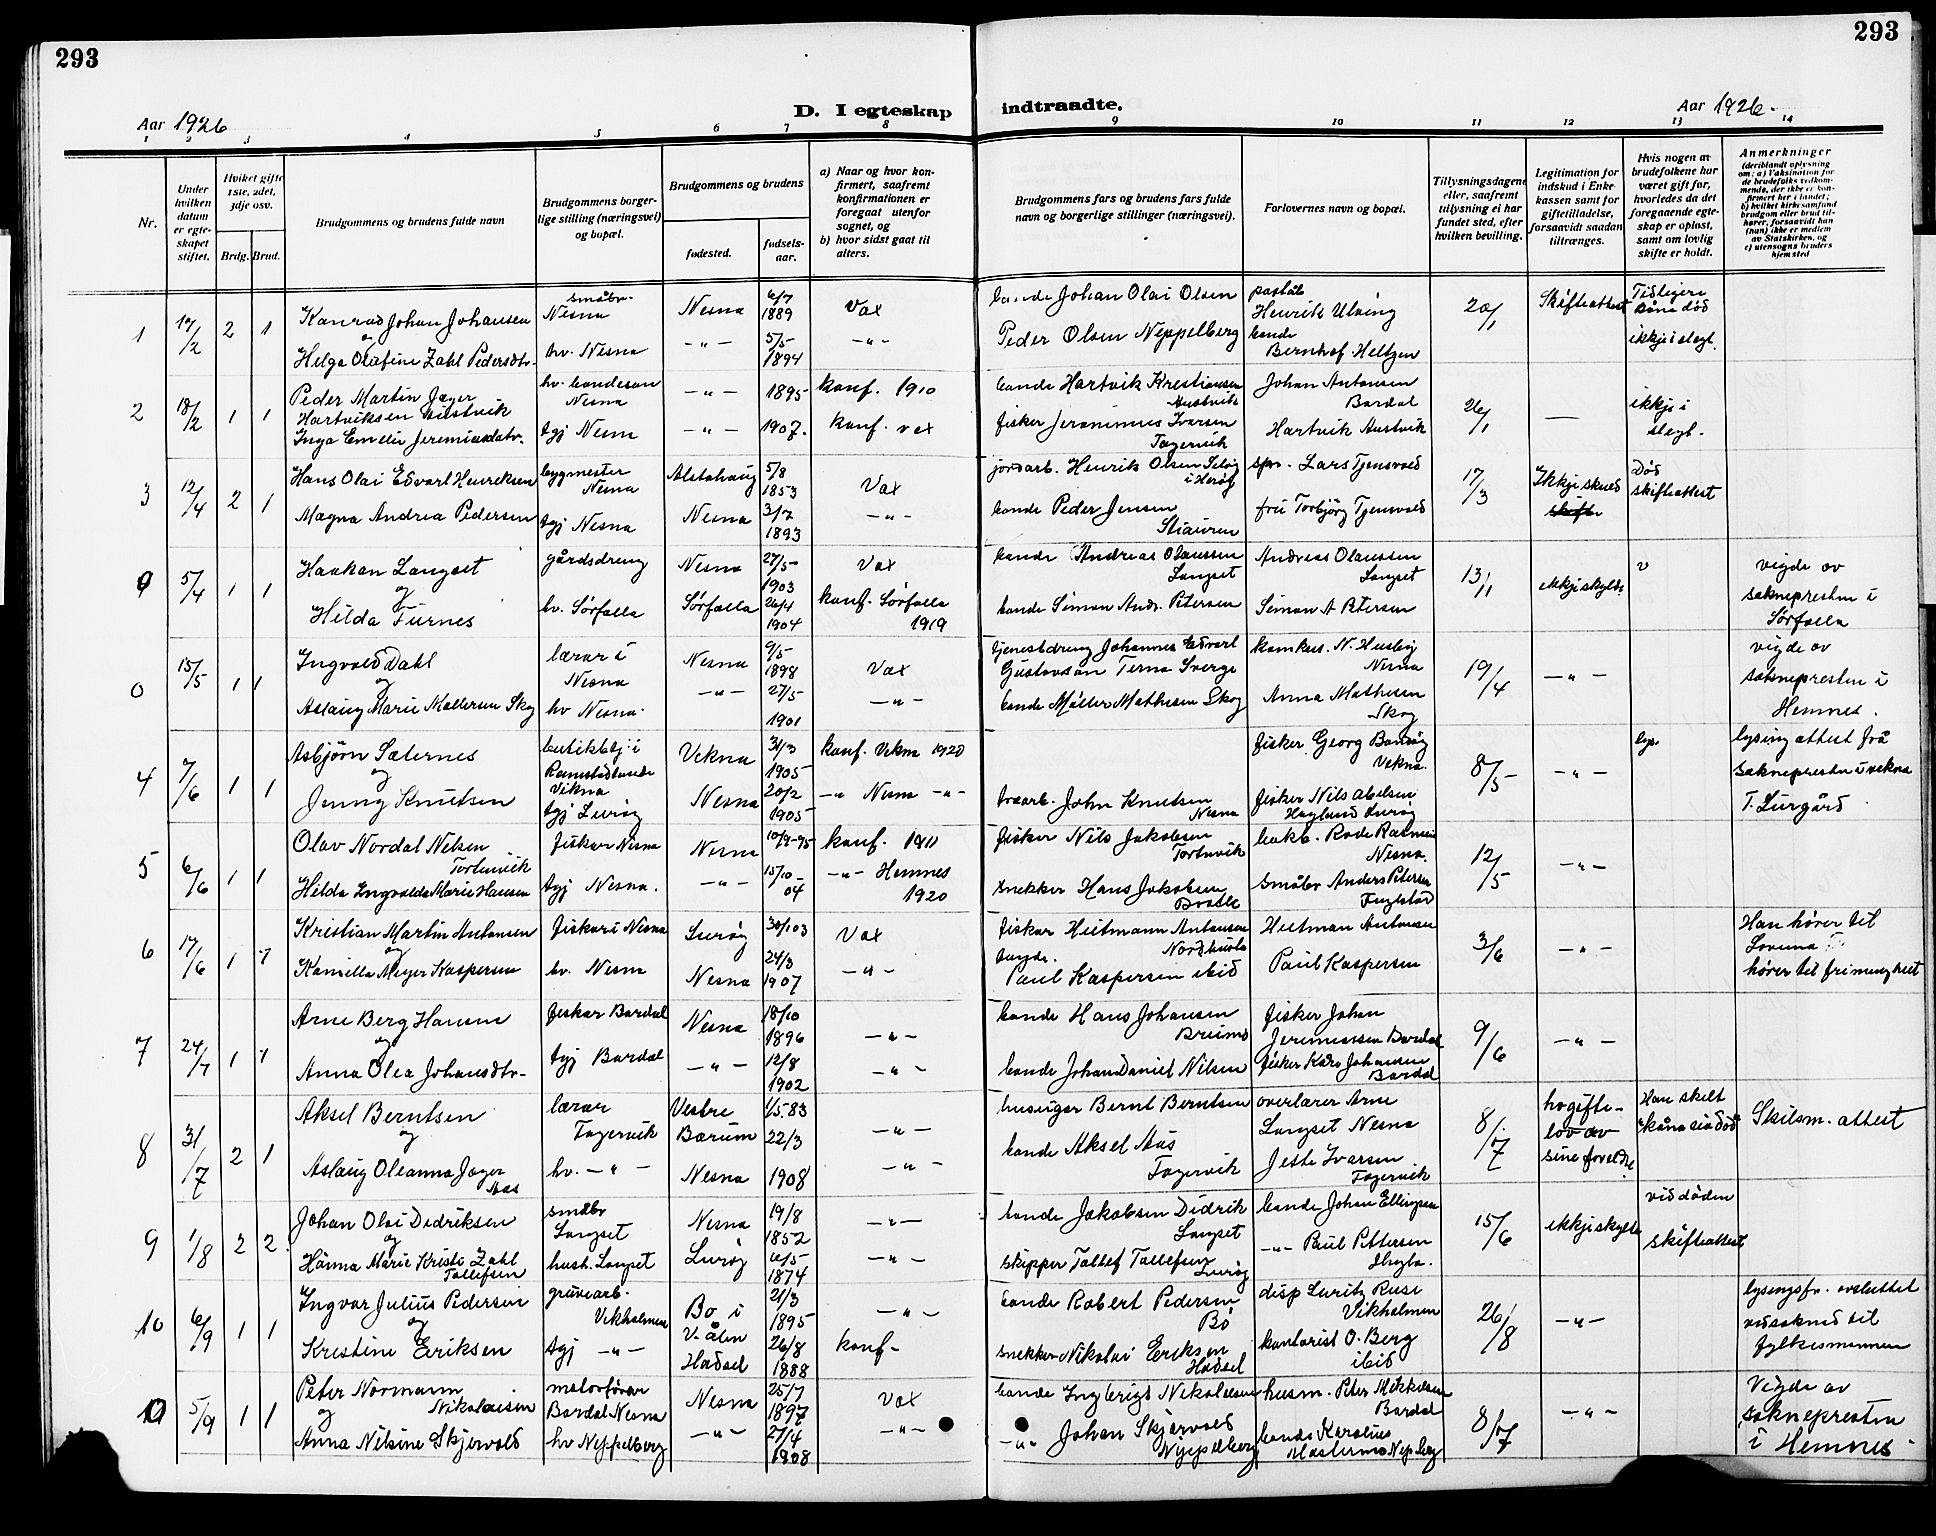 293
293
D. I egteskap indtraadte.
Aar 1926
Aar 1926.
1 2 3 4 5 6 7 8 9 10 11 12 13 14
Nr.
Under hvilken datum er egteskapet stiftet.
Hvilket gifte 1ste, 2det, 3dje osv.
Brdg. Brud.
Brudgommens og brudens fulde navn
Brudgommens borgerlige stilling (næringsvei) og bopæl.
Brudgommens og brudens
fødested.
fødselsaar.
a) Naar og hvor konfirmert, saafremt konfirmationen er foregaat utenfor sognet, og
b) hvor sidst gaat til alters.
Brudgommens fars og brudens fars fulde navn og borgerlige stillinger (næringsvei).
Forlovernes navn og bopæl.
Tillysningsdagene eller, saafremt tillysning ei har fundet sted, efter hvilken bevilling.
Legitimation for indskud i Enkekassen samt for giftetilladelse, forsaavidt saadan tiltrænges.
Hvis nogen av brudefolkene har været gift før, hvorledes da det foregaaende egteskap er opløst, samt om lovlig skifte er holdt.
Anmerkninger
1 17/2 2 1 Konrad Johan Johansen og småbr. Nesna Nesna 6/7 1889 Vax bonde Johan Olai Olsen Henrik Ulving 20/1 Skifteattest Tidligere kåna død
Helga Olufine Zahl Pedersdtr. hv. Nesna -"- 5/5 1894 -"- Peder Olsen Neppelberg bonde Bernhof Heltzen ikkje i slegt.
2 18/2 1 1 Peder Martin Jæger Hartviksen Austvik hv. bondeson Nesna -"- 1895 konf. 1910 bonde Hartvik Kristiansen Austvik Johan Antonsen Bardal 26/1 — ikkje i slegt.
Inga Emelie Jeremiasdatr. tgj Nesna -"- 1907. konf. vax fisker Jeronimus Iversen Fagervik Hartvik Austvik
3 12/4 2 1 Hans Olai Edvart Henriksen bygmester Nesna Alstahaug 5/8 1853 Vax jordarb. Henrik Olsen Seløy i Herøy spv. Lars Tjensvold 17/3 Ikkje skuld Død skifteattest
Magna Andrea Pedersen tgj Nesna Nesna 3/7 1893 -"- bonde Peder Jensen Stiauren fru Torbjørg Tjensvold
0 5/4 1 1 Haakon Langset og gårdsdreng Nesna 27/5 1903 Vax bonde Andreas Olaussen Langset Andreas Olaussen Langset 13/1 ikkje skylde vigde av sokneprestin i Sørfolla
Hilda Furnes hv. Sørfolla Sørfolla 26/4 1904 konf. Sørfolla 1919 bonde Simon Andr. Petersen Simon A Petersen
0 15/5 1 1 Ingvald Dahl og lærar i Nesna Nesna 9/5 1898 Vax tjenestdreng Johannes Edvart Gustavson Terna Sverge N. Husby Nesna 19/4 -"- vigde av sokneprestin i Hemnes.
Aslaug Marie Møllersen Skog hv Nesna. -"- 27/5 1901 -"- bonde Møller Mathesen Skog Anna Mathesen Skog
4 7/6 1 1 Asbjørn Sæternes og butikbtj. i Vikna Vikna 31/3 1905 konf. Vikna 1920 fisker Georg Vekna. 8/5 -"- lysing attest frå sokneprestin i vekna T. Lurgård
Jenny Knutsen tgj Lurøy Nesna 20/2 1905 -"- Nesna -"- John Knutsen Nesna fisker Nils Abelsen Haglund Lurøy
5 6/6 1 1 Olav Nordal Nilsen Tortenvik fisker Nesna Nesna 10/9-95 konf. 1911 fisker Nils Jakobsen Tortenvik Nesna. 12/5 -"-
Hilda Ingvalda Marie Hansen tgj Nesna. -"- 15/10-04 -"- Hemnes 1920 snekker Hans Jakobsen Bratli småbr Anders Petersen
6 17/6 1 1 Kristian Martin Antonsen og fiskar i Nesna Lurøy 30/103 Vax fisker Hutmann Antonsen Hutman Antonsen 3/6 -"- Han hører til Lovuna hører til frimenghet
Kamilla Meyer Kaspersen hv. Nesna Nesna 24/3 1907 -"- Paul Kaspersen ibid Paul Kaspersen
7 24/7 1 1 Arne Berg Hansen og fiskar Bardal Nesna 18/10 1896 -"- bonde Hans Johansen Breimo fisker Johan Jeremiassen Bardal 9/6 -"-
Anna Olea Johansdtr. tgj Bardal -"- 12/8 1902 -"- bonde Johan Daniel Nilsen fisker Karo Johansen Bardal
8 31/7 2 1 Aksel Berntsen og lærar Fagervik Vestre Bærum 1/5 83 -"- huseigar Bernt Berntsen overlærer Arne Langset Nesna 8/7 hogifte- lov av sine foreldre Han skilt kåna sin død Skilsm. attest
Aslaug Oleanna Jæger Aas hv. -"- Nesna 22/3 1908 -"- bonde Aksel Aas Fagervik Jette Ivarsen Fagervik
9 1/8 2 2. Johan Olai Didriksen og småbr Langset Nesna 19/8 1852 -"- bonde Jakobsen Didrik Langset bonde Johan Ellingsen 15/6 ikkje skylde vid døden skifteattest
Hanna Marie Kristi Zahl Tollefsen hush. Langset Lurøy 6/5 1874 -"- skipper Tollef Tollefsen Lurøy -"- Paul Pettersen
10 6/9 1 1 Ingvar Julius Pedersen og gruvearb. Vikholmen Bo i V. ålen 21/3 1895 -"- bonde Robert Pedersen Bö disp Luritz Ruse Vikholmen 26/8 -"- lysingsfr. avsluttet vidsoknid til fylkesmannen
Kristine Eriksen tgj -"- Hadsel 26/8 1888 konf- snekker Nikolai Eriksen Hadsel kontorist O. Berg ibid
10 5/9 1 1 Peter Normann Nikolaisen og motorfører Bardal Nesna Nesna 25/7 1897 Vax bonde Ingbrigt Nikolaisen husm. Peter Mikkelsen Bardal 8/7 -"- Vigde av sokneprestin i Hemnes
Anna Nilsine Skjervold hv Neppelberg -"- 27/4 1908 -"- -"- Johan Skjærvold Neppelberg bonde Karolius